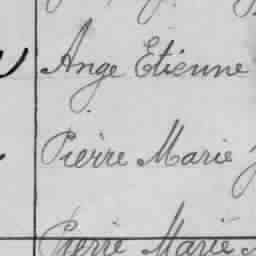 Ange Etienne
Pierre Marie
Pierre Marie